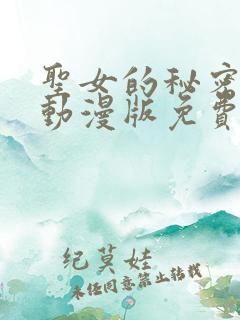 聖女的秘密
動漫版免費
紀莫娃
未經同意禁止轉載